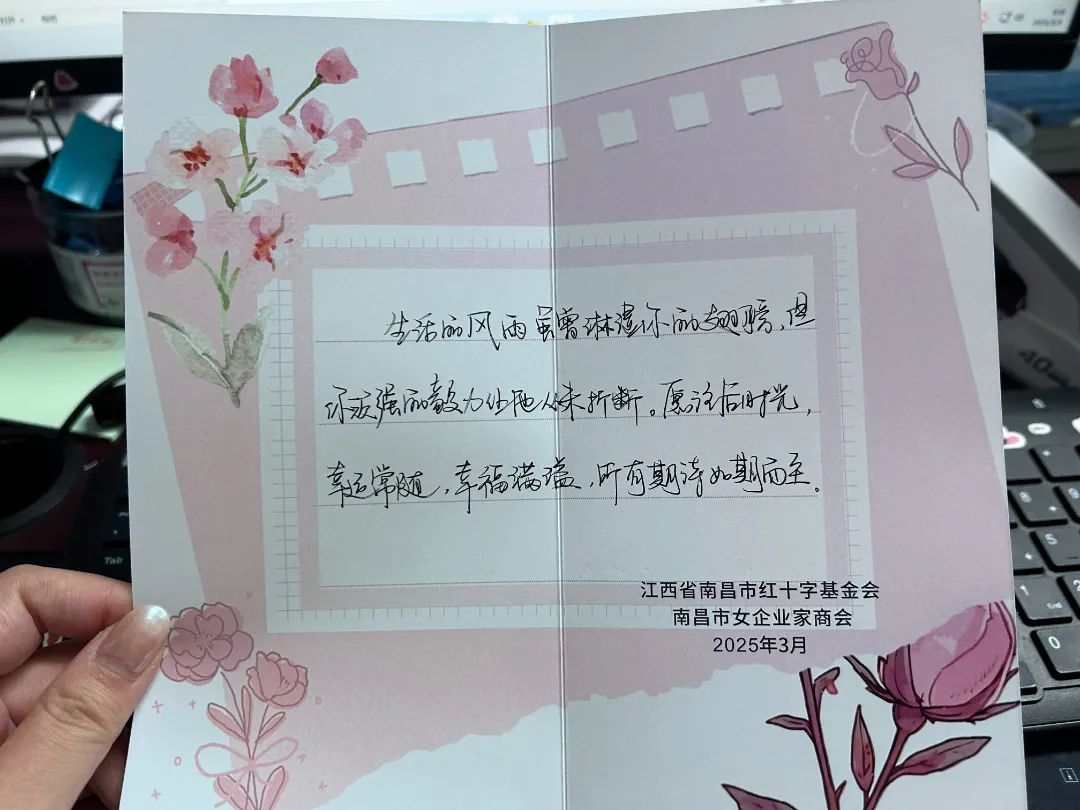 生活的风雨虽曾淋湿你的翅膀，但
你顽强的毅力让他从未折断。愿往后时光，
幸运常随，幸福满溢，所有期待如期而至。
江西省南昌市红十字基金会
南昌市女企业家商会
2025年3月
Tab
40